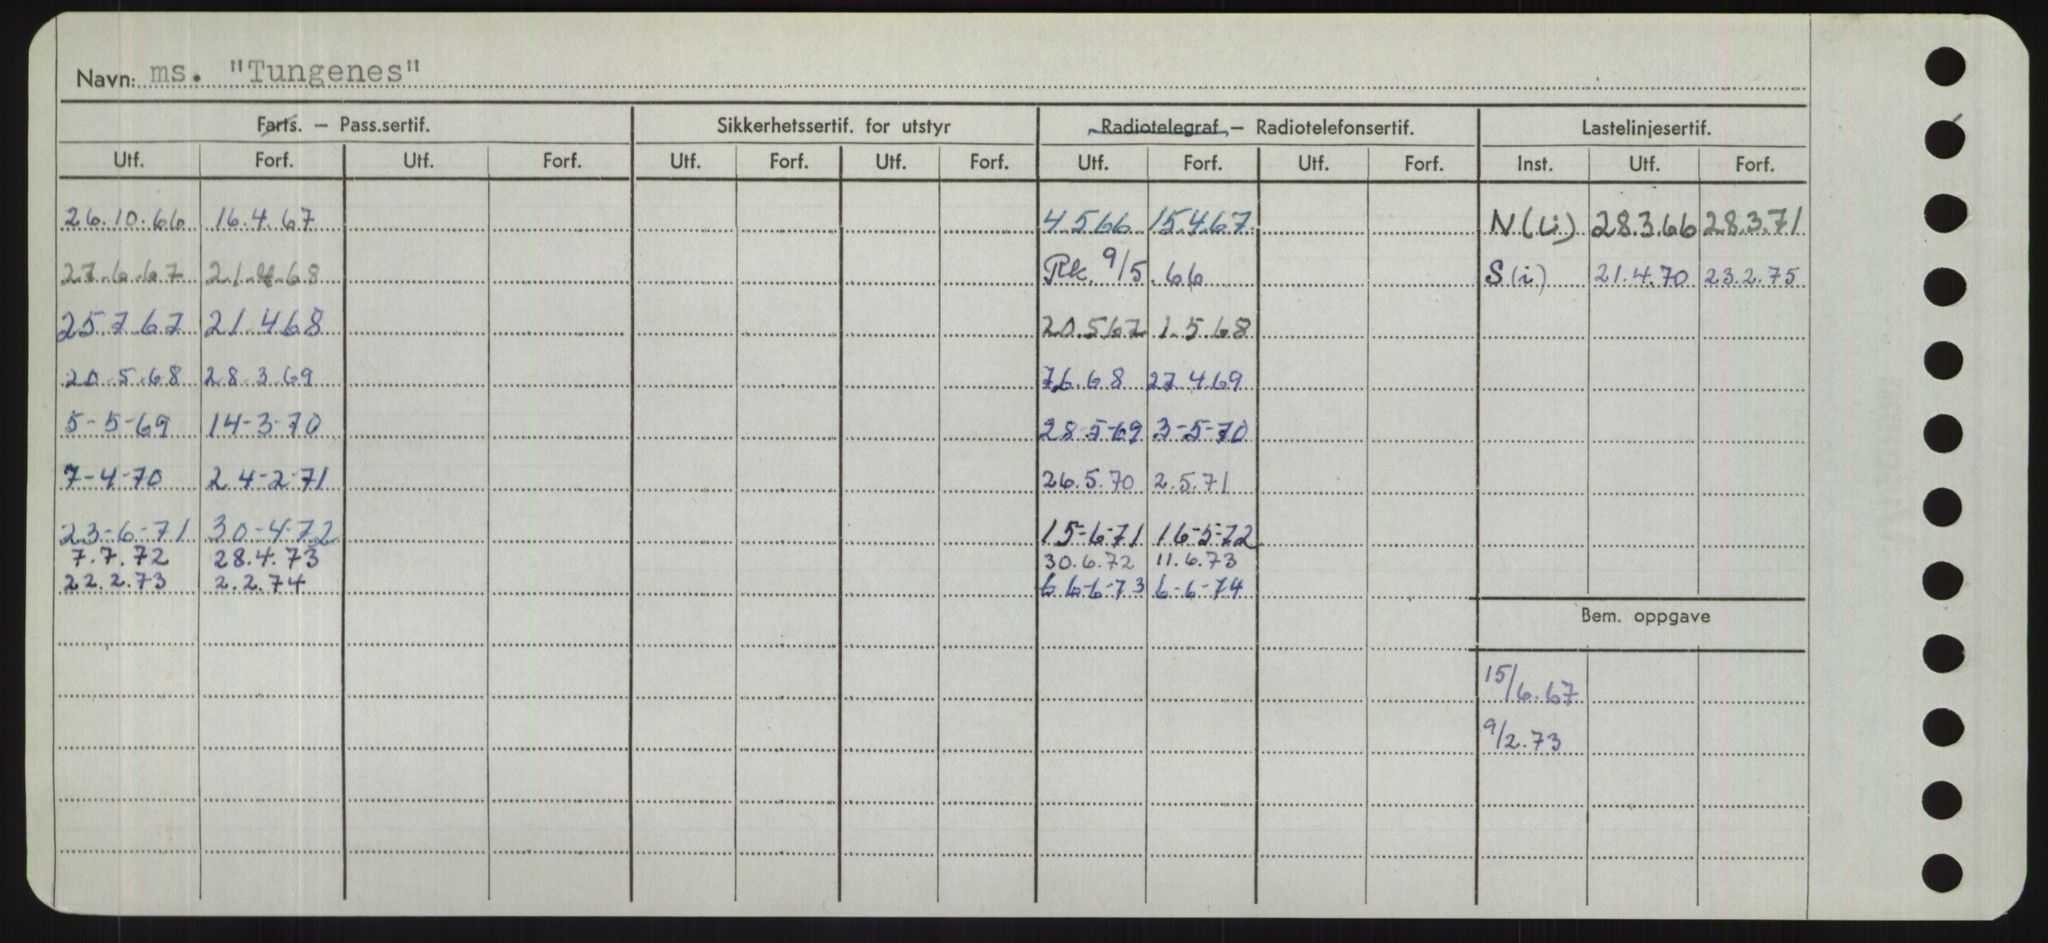 Navn: ms. "Tungenes"
Farts. – Pass.sertif. Sikkerhetssertif. for utstyr Radiotelegraf – Radiotelefonsertif. Lastelinjesertif.
Utf. Forf. Utf. Forf. Utf. Forf. Utf. Forf. Utf. Forf. Utf. Forf. Inst. Utf. Forf.
26.10.66 16.4.67 4.5.66 15.4.67 N (Li) 28.3.66 28.3.71
27.6.67 21.4.68 Rk. 9/5.66 S (i) 21.4.70 23.2.75
25.7.67 21.4.68 20.5.67 1.5.68
20.5.68 28.3.69 7.6.68 27.4.69
5-5-69 14-3-70 28-5-69 3-5-70
7-4-70 24-2-71 26.5.70 2.5.71
23-6-71 30-4-72 15-6-71 16-5-72
7.7.72 28.4.73 30.6.72 11.6.73
22.2.73 2.2.74 6-6-73 6-6-74
Bem. oppgave
15/6.67
9/2.73